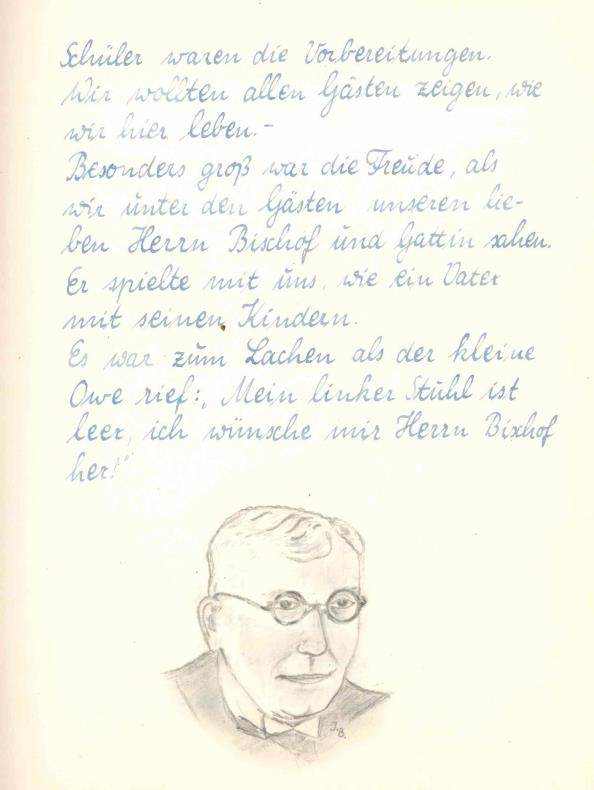 Schüler waren die Vorbereitungen.
Wir wollten allen Gästen zeigen, wie
wir hier leben.-
Besonders groß war die Freude, als
wir unter den Gästen unseren lie-
ben Herrn Bischof und Gattin sahen.
Er spielte mit uns, wie ein Vater
mit seinen Kindern.
Es war zum Lachen als der kleine
Owe rief: „Mein linker Stuhl ist
leer, ich wünsche mir Herrn Bischof
her!"
J.B.